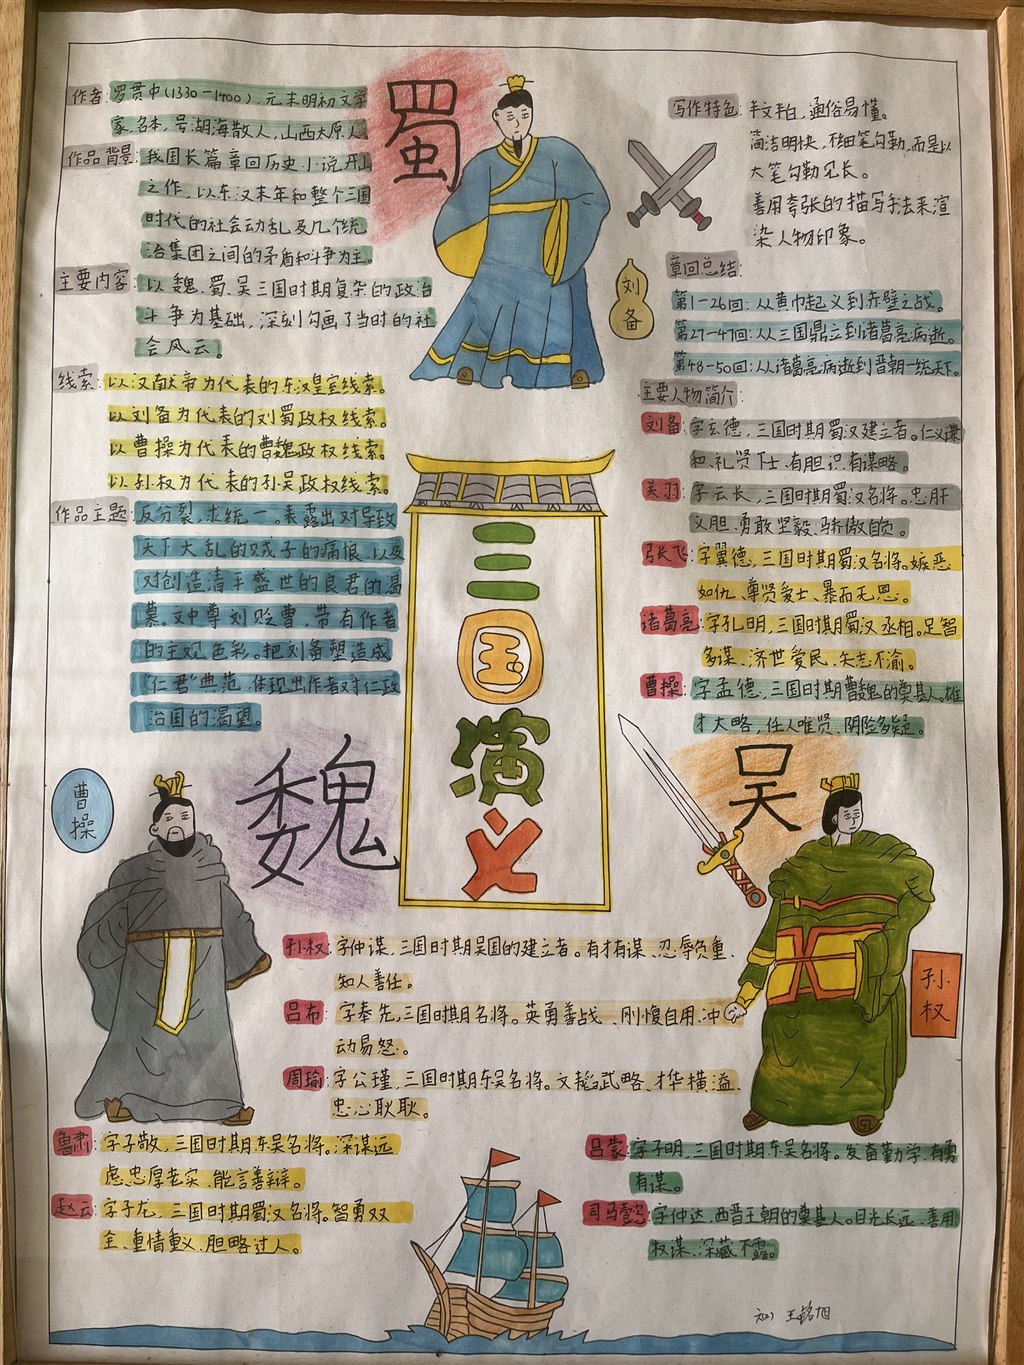 蜀
作者:罗贯中(1330-1400),元末明初文学
家,名本,号湖海散人,山西太原人。
作品背景:我国长篇章回历史小说开山
之作,以东汉末年和整个三国
时代的社会动乱及几个统
治集团之间的矛盾和斗争为主。
主要内容:以魏、蜀、吴三国时期复杂的政治
斗争为基础,深刻勾画了当时的社
会风云。
线索:以汉献帝为代表的东汉皇室线索。
以刘备为代表的刘蜀政权线索。
以曹操为代表的曹魏政权线索。
以孙权为代表的孙吴政权线索。
作品主题:反分裂,求统一。表露出对导致
天下大乱的贼子的痛恨,以及
对创造清平盛世的良君的渴
慕。文中尊刘贬曹,带有作者
的主观色彩。把刘备塑造成
"仁君"典范,体现出作者对仁政
治国的渴望。
写作特色:半文半白,通俗易懂。
简洁明快,不细笔勾勒,而是以
大笔勾勒见长。
善用夸张的描写手法来渲
染人物印象。
刘备
章回总结:
第1-26回:从黄巾起义到赤壁之战。
第27-47回:从三国鼎立到诸葛亮病逝。
第48-50回:从诸葛亮病逝到晋朝一统天下。
主要人物简介:
刘备:字玄德,三国时期蜀汉建立者。仁义谦
和、礼贤下士、有胆识有谋略。
关羽:字云长,三国时期蜀汉名将。忠肝
义胆、勇敢坚毅、骄傲自负。
张飞:字翼德,三国时期蜀汉名将。嫉恶
如仇、尊贤爱士、暴而无恩。
诸葛亮:字孔明,三国时期蜀汉丞相。足智
多谋、济世爱民、矢志不渝。
曹操:字孟德,三国时期曹魏的奠基人。雄
才大略,任人唯贤、阴险多疑。
三国演义
曹操
魏
吴
孙权
孙权:字仲谋,三国时期吴国的建立者。有才有谋、忍辱负重、
知人善任。
吕布:字奉先,三国时期名将。英勇善战、刚愎自用、冲
动易怒。
周瑜:字公瑾,三国时期东吴名将。文韬武略、才华横溢、
忠心耿耿。
鲁肃:字子敬,三国时期东吴名将。深谋远
虑、忠厚老实、能言善辩。
赵云:字子龙,三国时期蜀汉名将。智勇双
全、重情重义、胆略过人。
吕蒙:字子明,三国时期东吴名将。发奋勤学、有勇
有谋。
司马懿:字仲达,西晋王朝的奠基人。目光长远、善用
权谋、深藏不露。
王铭旭